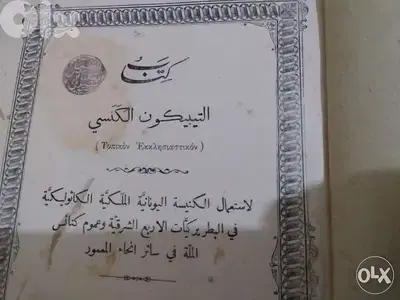 كتاب
التيبيكون الكنسي
(Τυπικὸν Ἐκκλησιαστικόν)
لاستعمال الكنيسة اليونانية الملكية الكاثوليكية
في البطريركيات الاربع الشرقية وعموم كنائس
الملة في سائر انحاء المسور
OLX